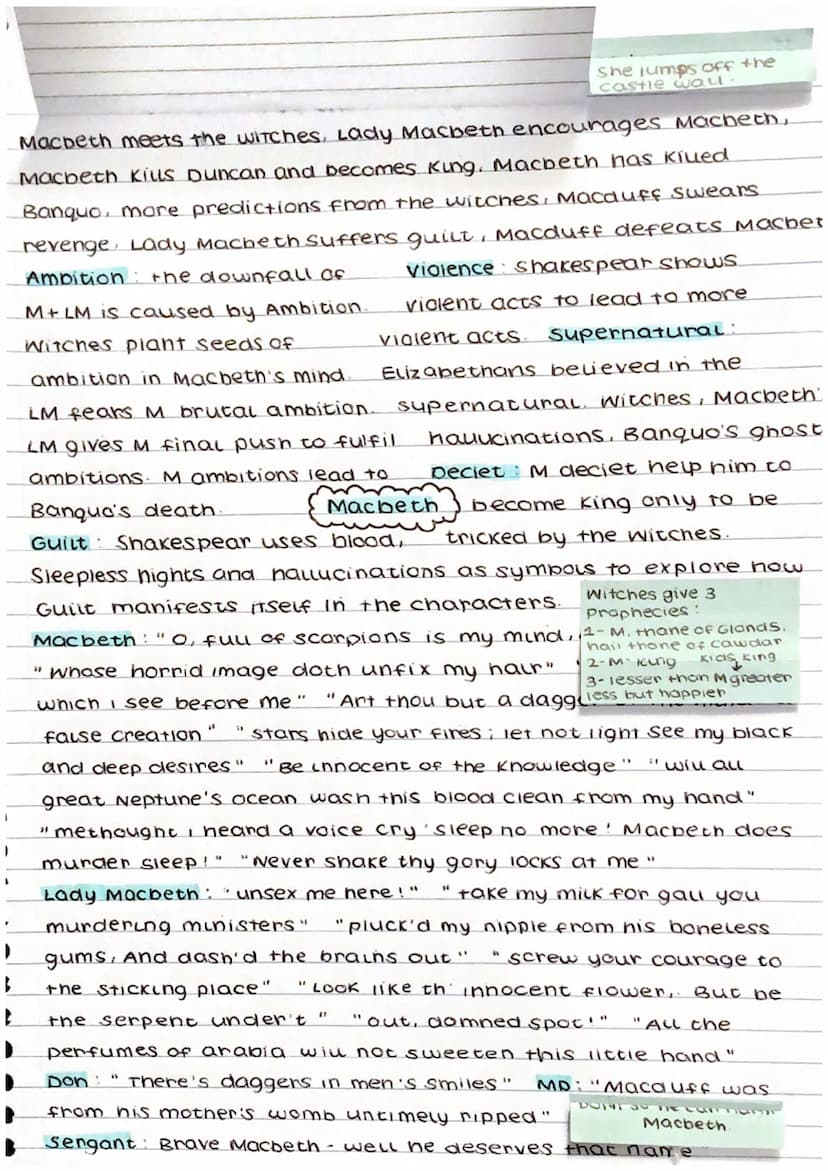 She jumps off the
castle wall.
Macbeth meets the witches, Lady Macbeth encourages Macbeth,
Macbeth kills Duncan and becomes King, Macbeth has killed
Banquo, more predictions from the witches, Macduff swears
revenge, Lady Macbeth suffers guilt, Macduff defeats Macbet
Ambition : the downfall of
M + LM is caused by Ambition.
Witches plant seeds of
ambition in Macbeth's mind.
LM fears M brutal ambition.
LM gives M final push to fulfil
ambitions. M ambitions lead to
Banquo's death.
Violence : Shakespear shows
violent acts to lead to more
violent acts. Supernatural :
Elizabethans believed in the
supernatural. Witches, Macbeth'
hallucinations, Banquo's ghost
Deciet : M deciet help him to
become King only to be
tricked by the witches.
Macbeth
Guilt : Shakespear uses blood,
Sleepless nights and hallucinations as symbols to explore how
Guilt manifests itself in the characters.
Witches give 3
Prophecies :
1- M, thane of Glands,
hail thane of Cawdar
2- M. King kids King
3- lesser than M greater
less but happier
Macbeth : "O, full of scorpions is my mind,
"Whose horrid image doth unfix my hair"
which I see before me" "Art thou but a dagg
false creation" "stars hide your fires; let not light see my black
and deep desires" "Be innocent of the knowledge" "will all
great Neptune's ocean wash this blood clean from my hand"
"methought I heard a voice cry 'sleep no more! Macbeth does
murder sleep!" "Never shake thy gory locks at me"
Lady Macbeth : "unsex me here!" "take my milk for gall you
murdering ministers" "pluck'd my nipple from his boneless
gums, And dash'd the brains out" "screw your courage to
the sticking place" "Look like th' innocent flower, But be
the serpent under't" "out, damned spot!" "All the
perfumes of arabia will not sweeten this little hand"
Don : "There's daggers in men's smiles" MD : "Macduff was
from his mother's womb untimely ripped"
Macbeth
Sengant : Brave Macbeth - well he deserves that name